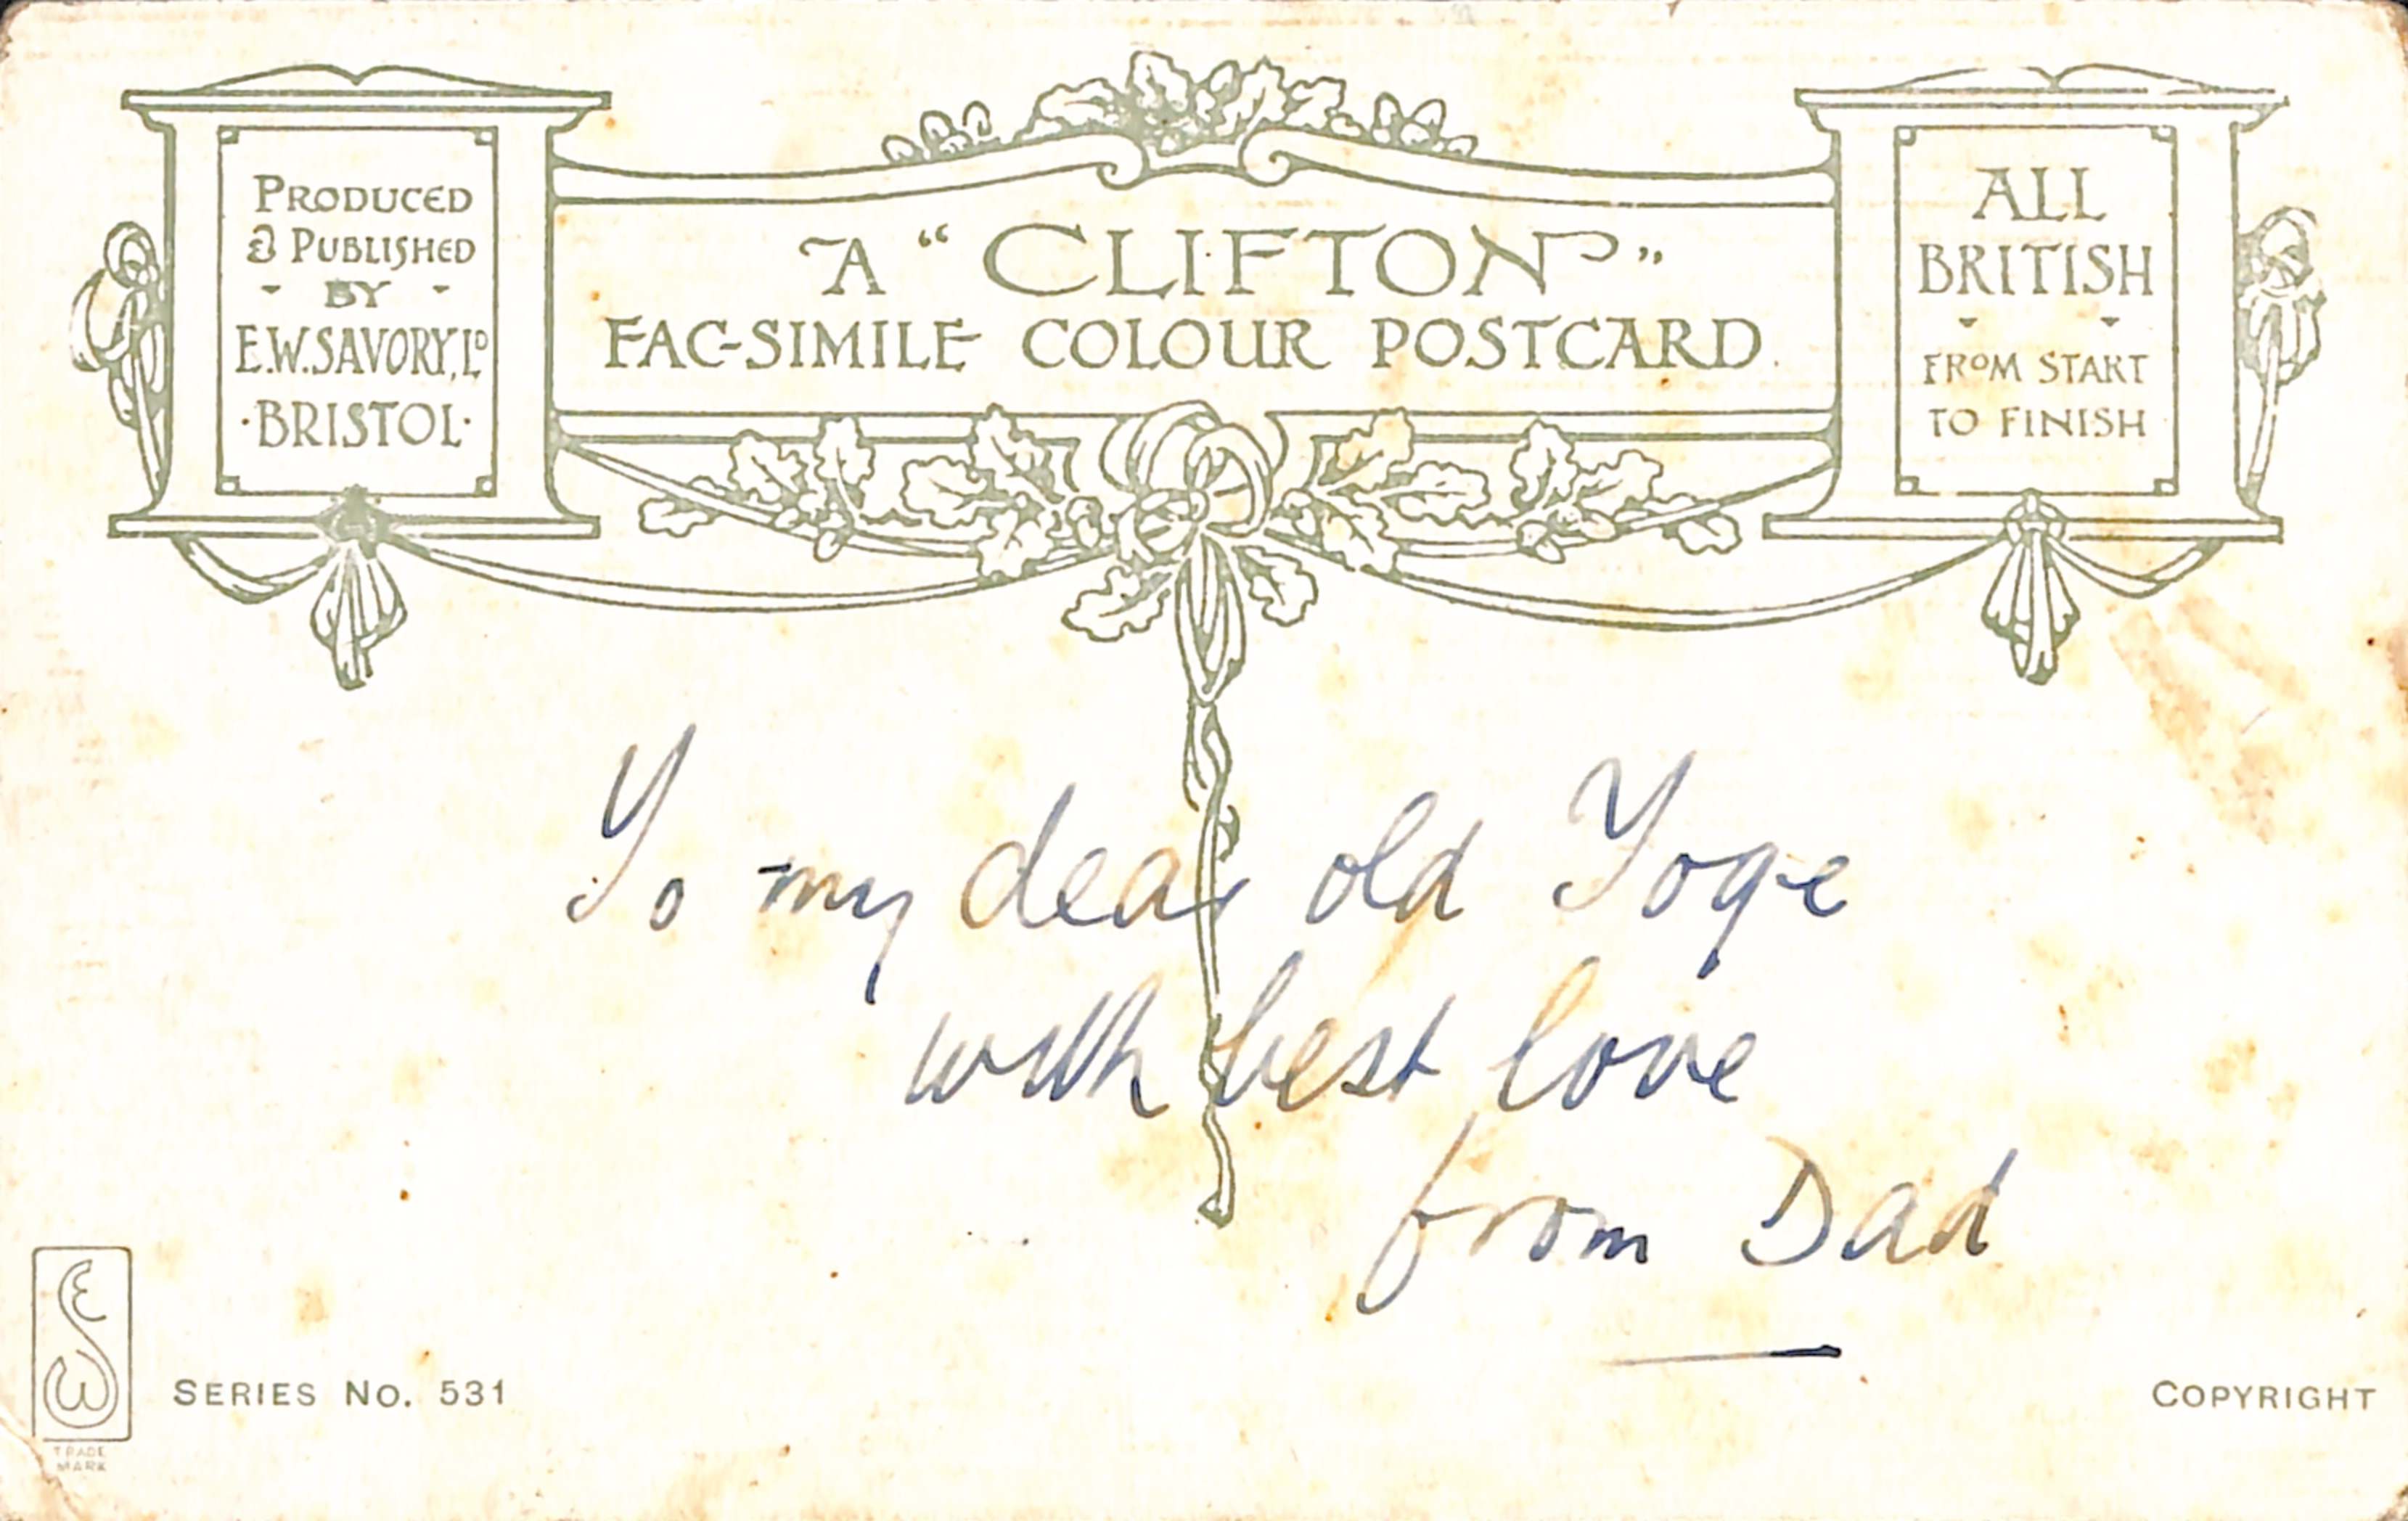 PRODUCED
& PUBLISHED
- BY -
E.W. SAVORY, Lᴰ
·BRISTOL·
A "CLIFTON"
FAC-SIMILE COLOUR POSTCARD.
ALL
BRITISH
FROM START
TO FINISH
To my dear old Toge
with best love
from Dad
TRADE
MARK
SERIES NO. 531
COPYRIGHT